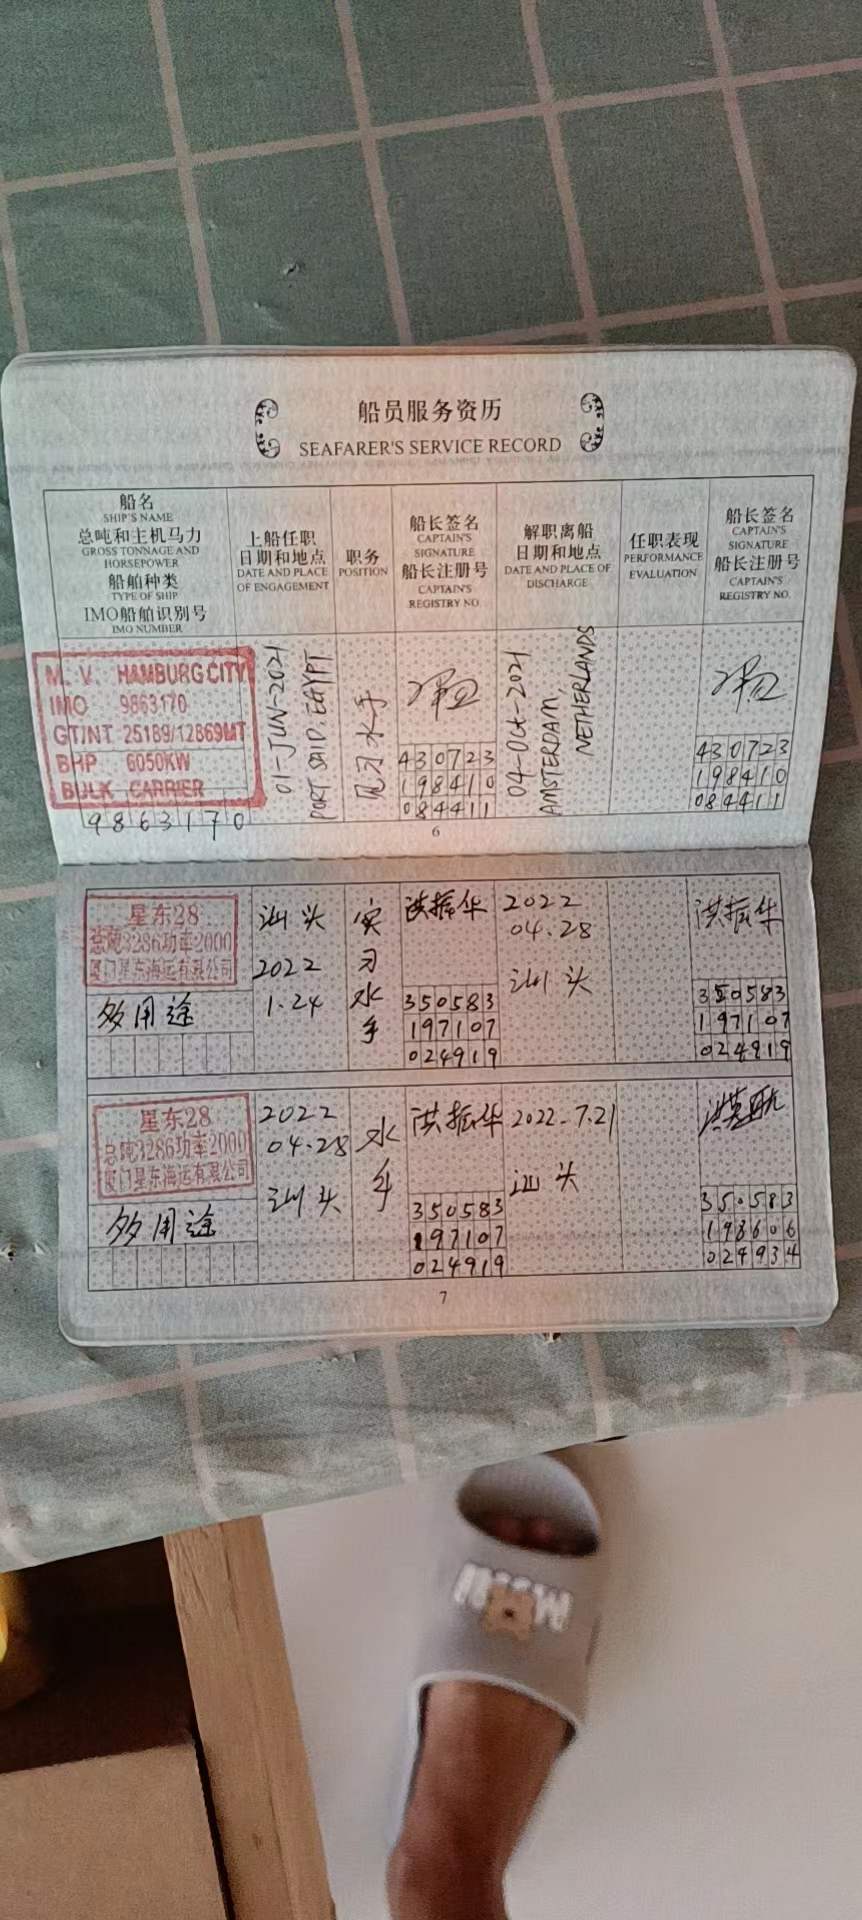 船员服务资历
SEAFARER'S SERVICE RECORD
船名
SHIP'S NAME
总吨和主机马力
GROSS TONNAGE AND
HORSEPOWER
船舶种类
TYPE OF SHIP
IMO船舶识别号
IMO NUMBER
上船任职
日期和地点
DATE AND PLACE
OF ENGAGEMENT
职务
POSITION
船长签名
CAPTAIN'S
SIGNATURE
船长注册号
CAPTAIN'S
REGISTRY NO.
解职离船
日期和地点
DATE AND PLACE OF
DISCHARGE
任职表现
PERFORMANCE
EVALUATION
船长签名
CAPTAIN'S
SIGNATURE
船长注册号
CAPTAIN'S
REGISTRY NO.
M. V. HAMBURG CITY
IMO 9863170
GT/NT 25189/12869MT
BHP 6050KW
BULK CARRIER
9863170
01-JUN-2021
PORT SAID, EGYPT
见习水手
430723
198410
084411
04-Oct-2021
AMSTERDAM,
NETHERLANDS
430723
198410
084411
6
星东28
总吨3286功率2000
厦门星东海运有限公司
多用途
汕头
2022
1.24
实习水手
洪振华
350583
197107
024919
2022
04.28
汕头
洪振华
350583
197107
024919
星东28
总吨3286功率2000
厦门星东海运有限公司
多用途
2022
04.28
汕头
水手
洪振华
350583
197107
024919
2022.7.21
汕头
350583
198606
024934
7